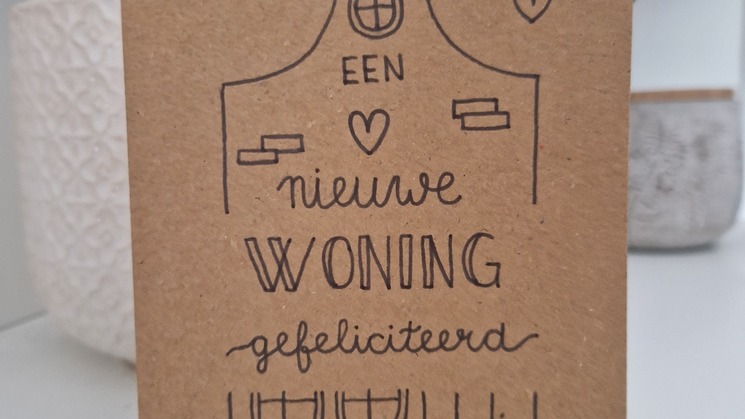 EEN
nieuwe
WONING
gefeliciteerd